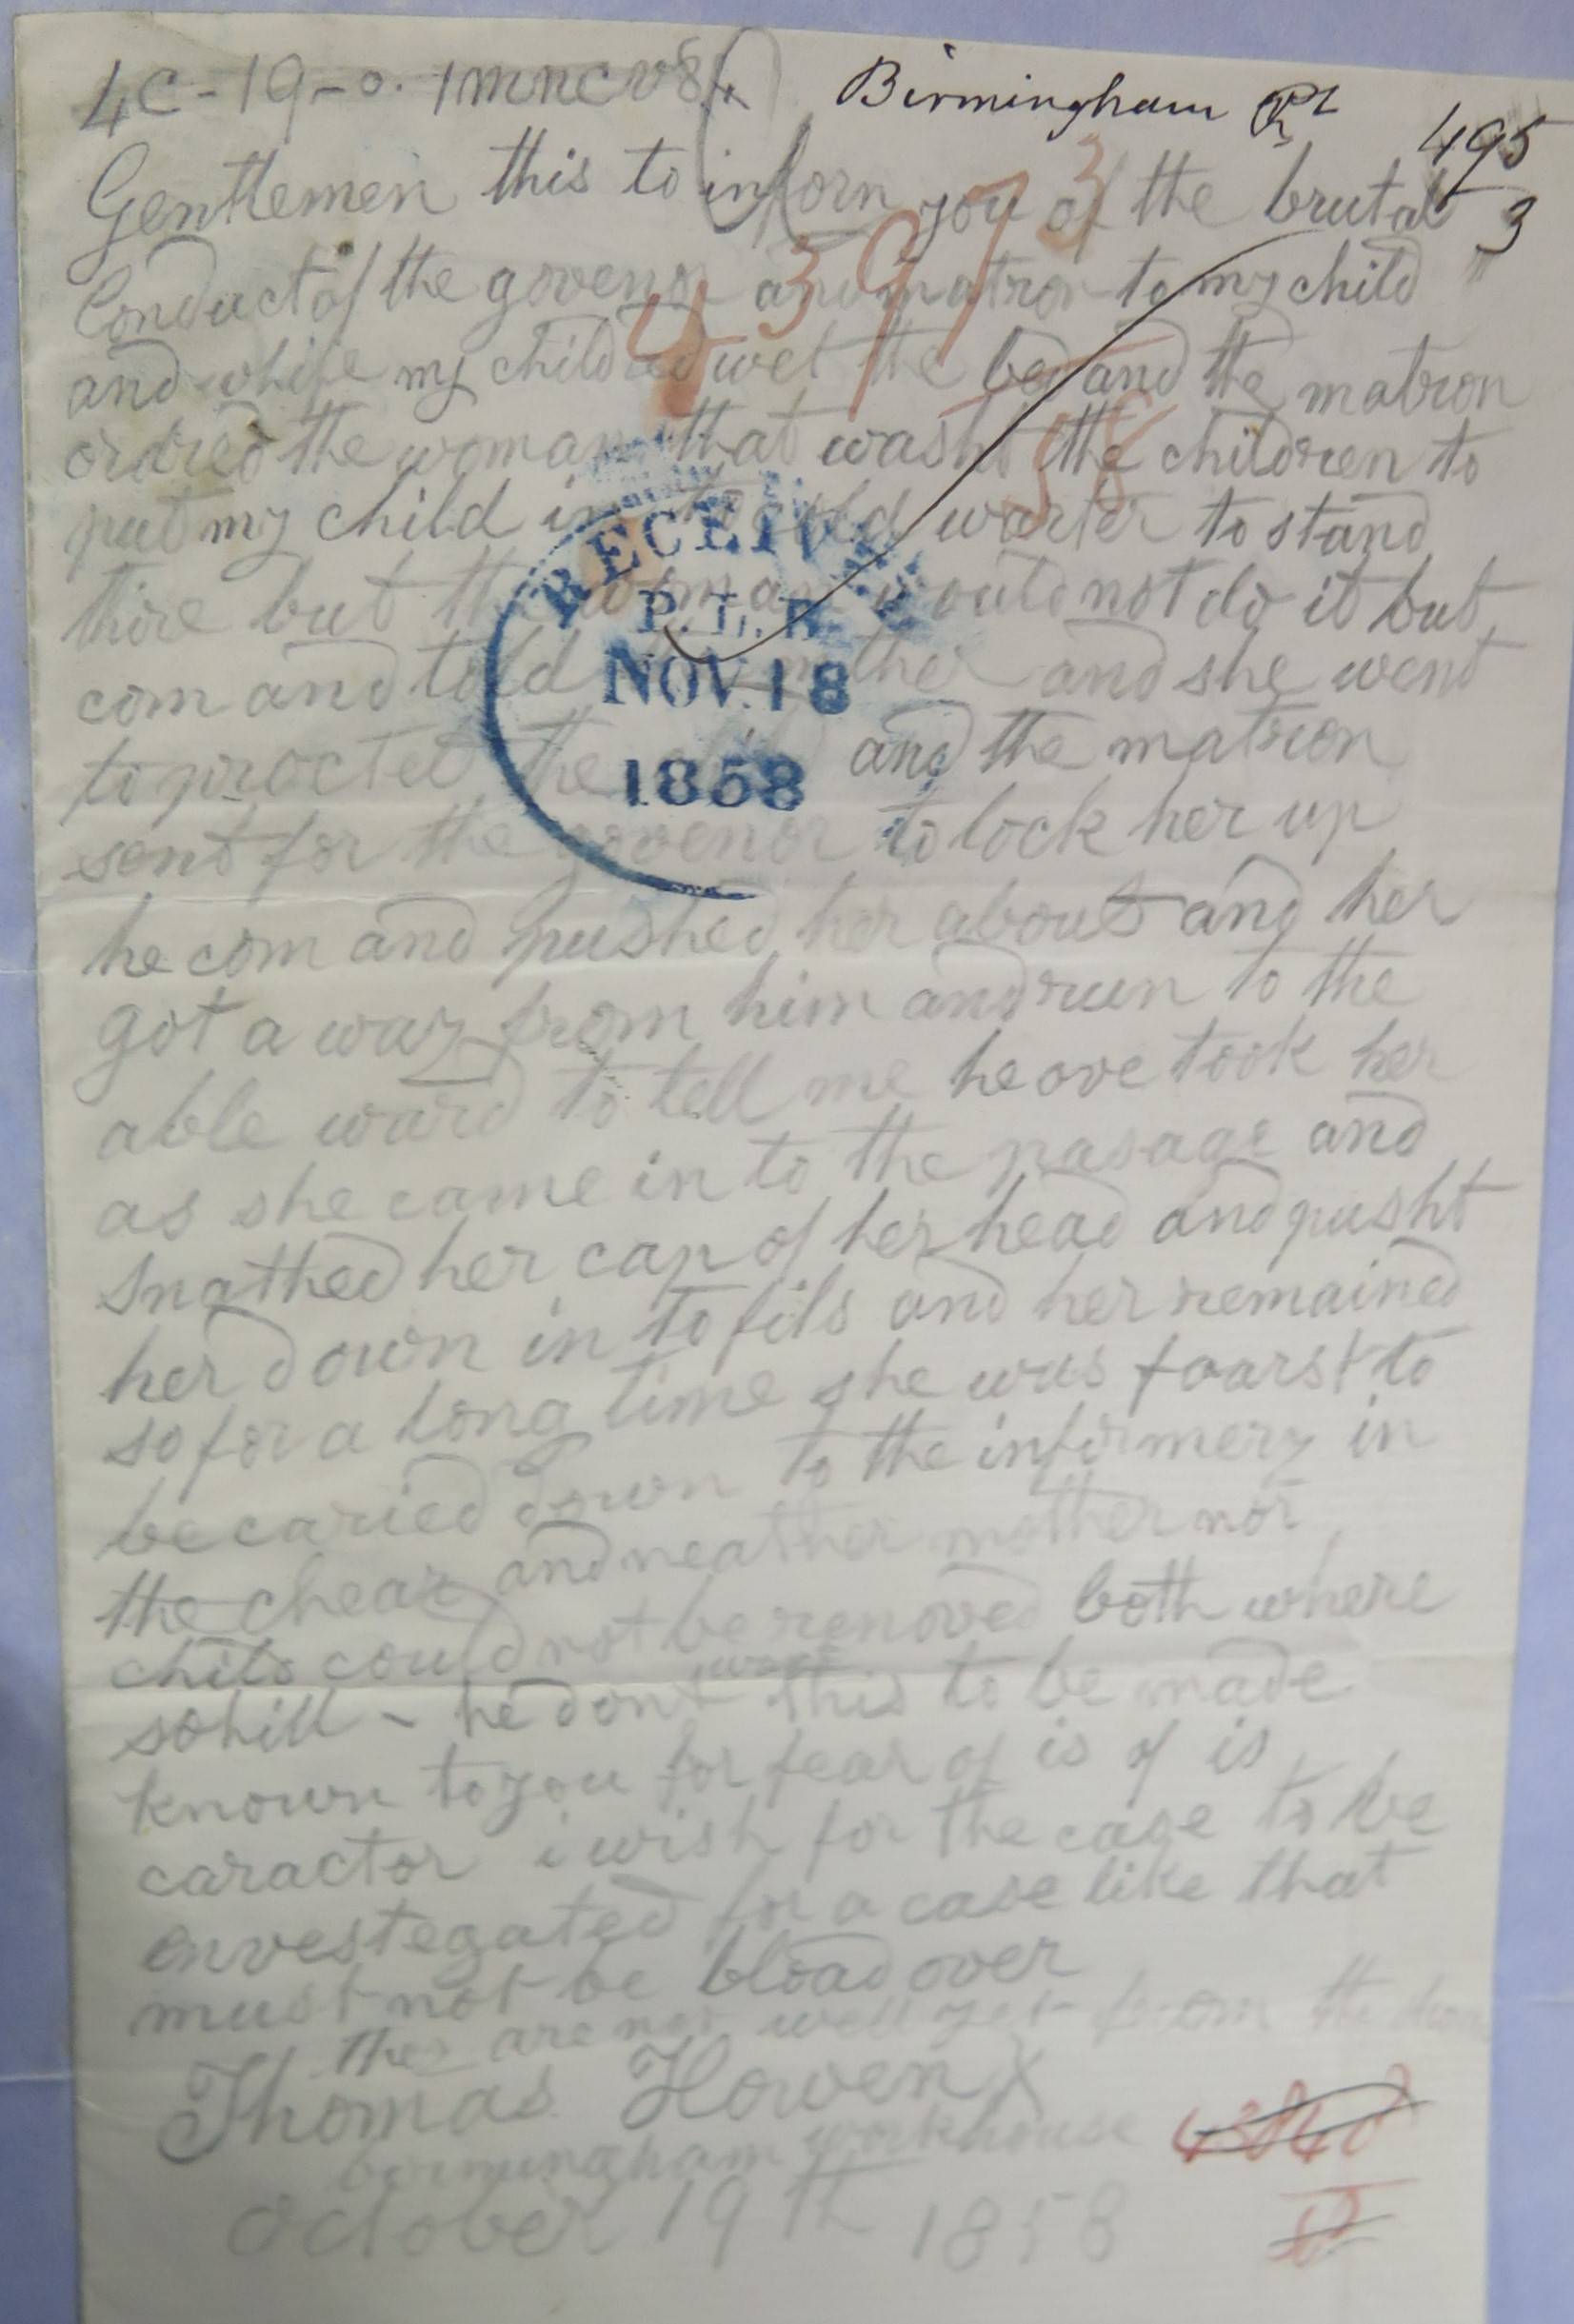 Birmingham
495
3
Gentlemen this to inforn you of the brutal
Conduct of the govenor and matron to my child
and while my child ad wet the bed and the matron
ordred the woman that washt the children to
put my child in to cold warter to stand
thire but the woman would not do it but
com and told mother and she went
to proctect the child and the matron
sent for the govenor to lock her up
he com and pushed her about and her
got a way from him and run to the
able ward to tell me he ove took her
as she came in to the pasage and
snathed her cap of her head and pusht
her down in to fits and her remained
so for a long time she was foarst to
be caried down to the infirmery in
the chear and neather mother nor
child could not be removed both where
so hill - he dont want this to be made
known to you for fear of is of is
caractor i wish for the case to be
envestegated for a case like that
must not be bload over
the are not well yet from the
Thomas Howen X
birmingham workhouse
October 19th 1858
43973
58
RECEIVED
P.L.B.
NOV. 18
1858